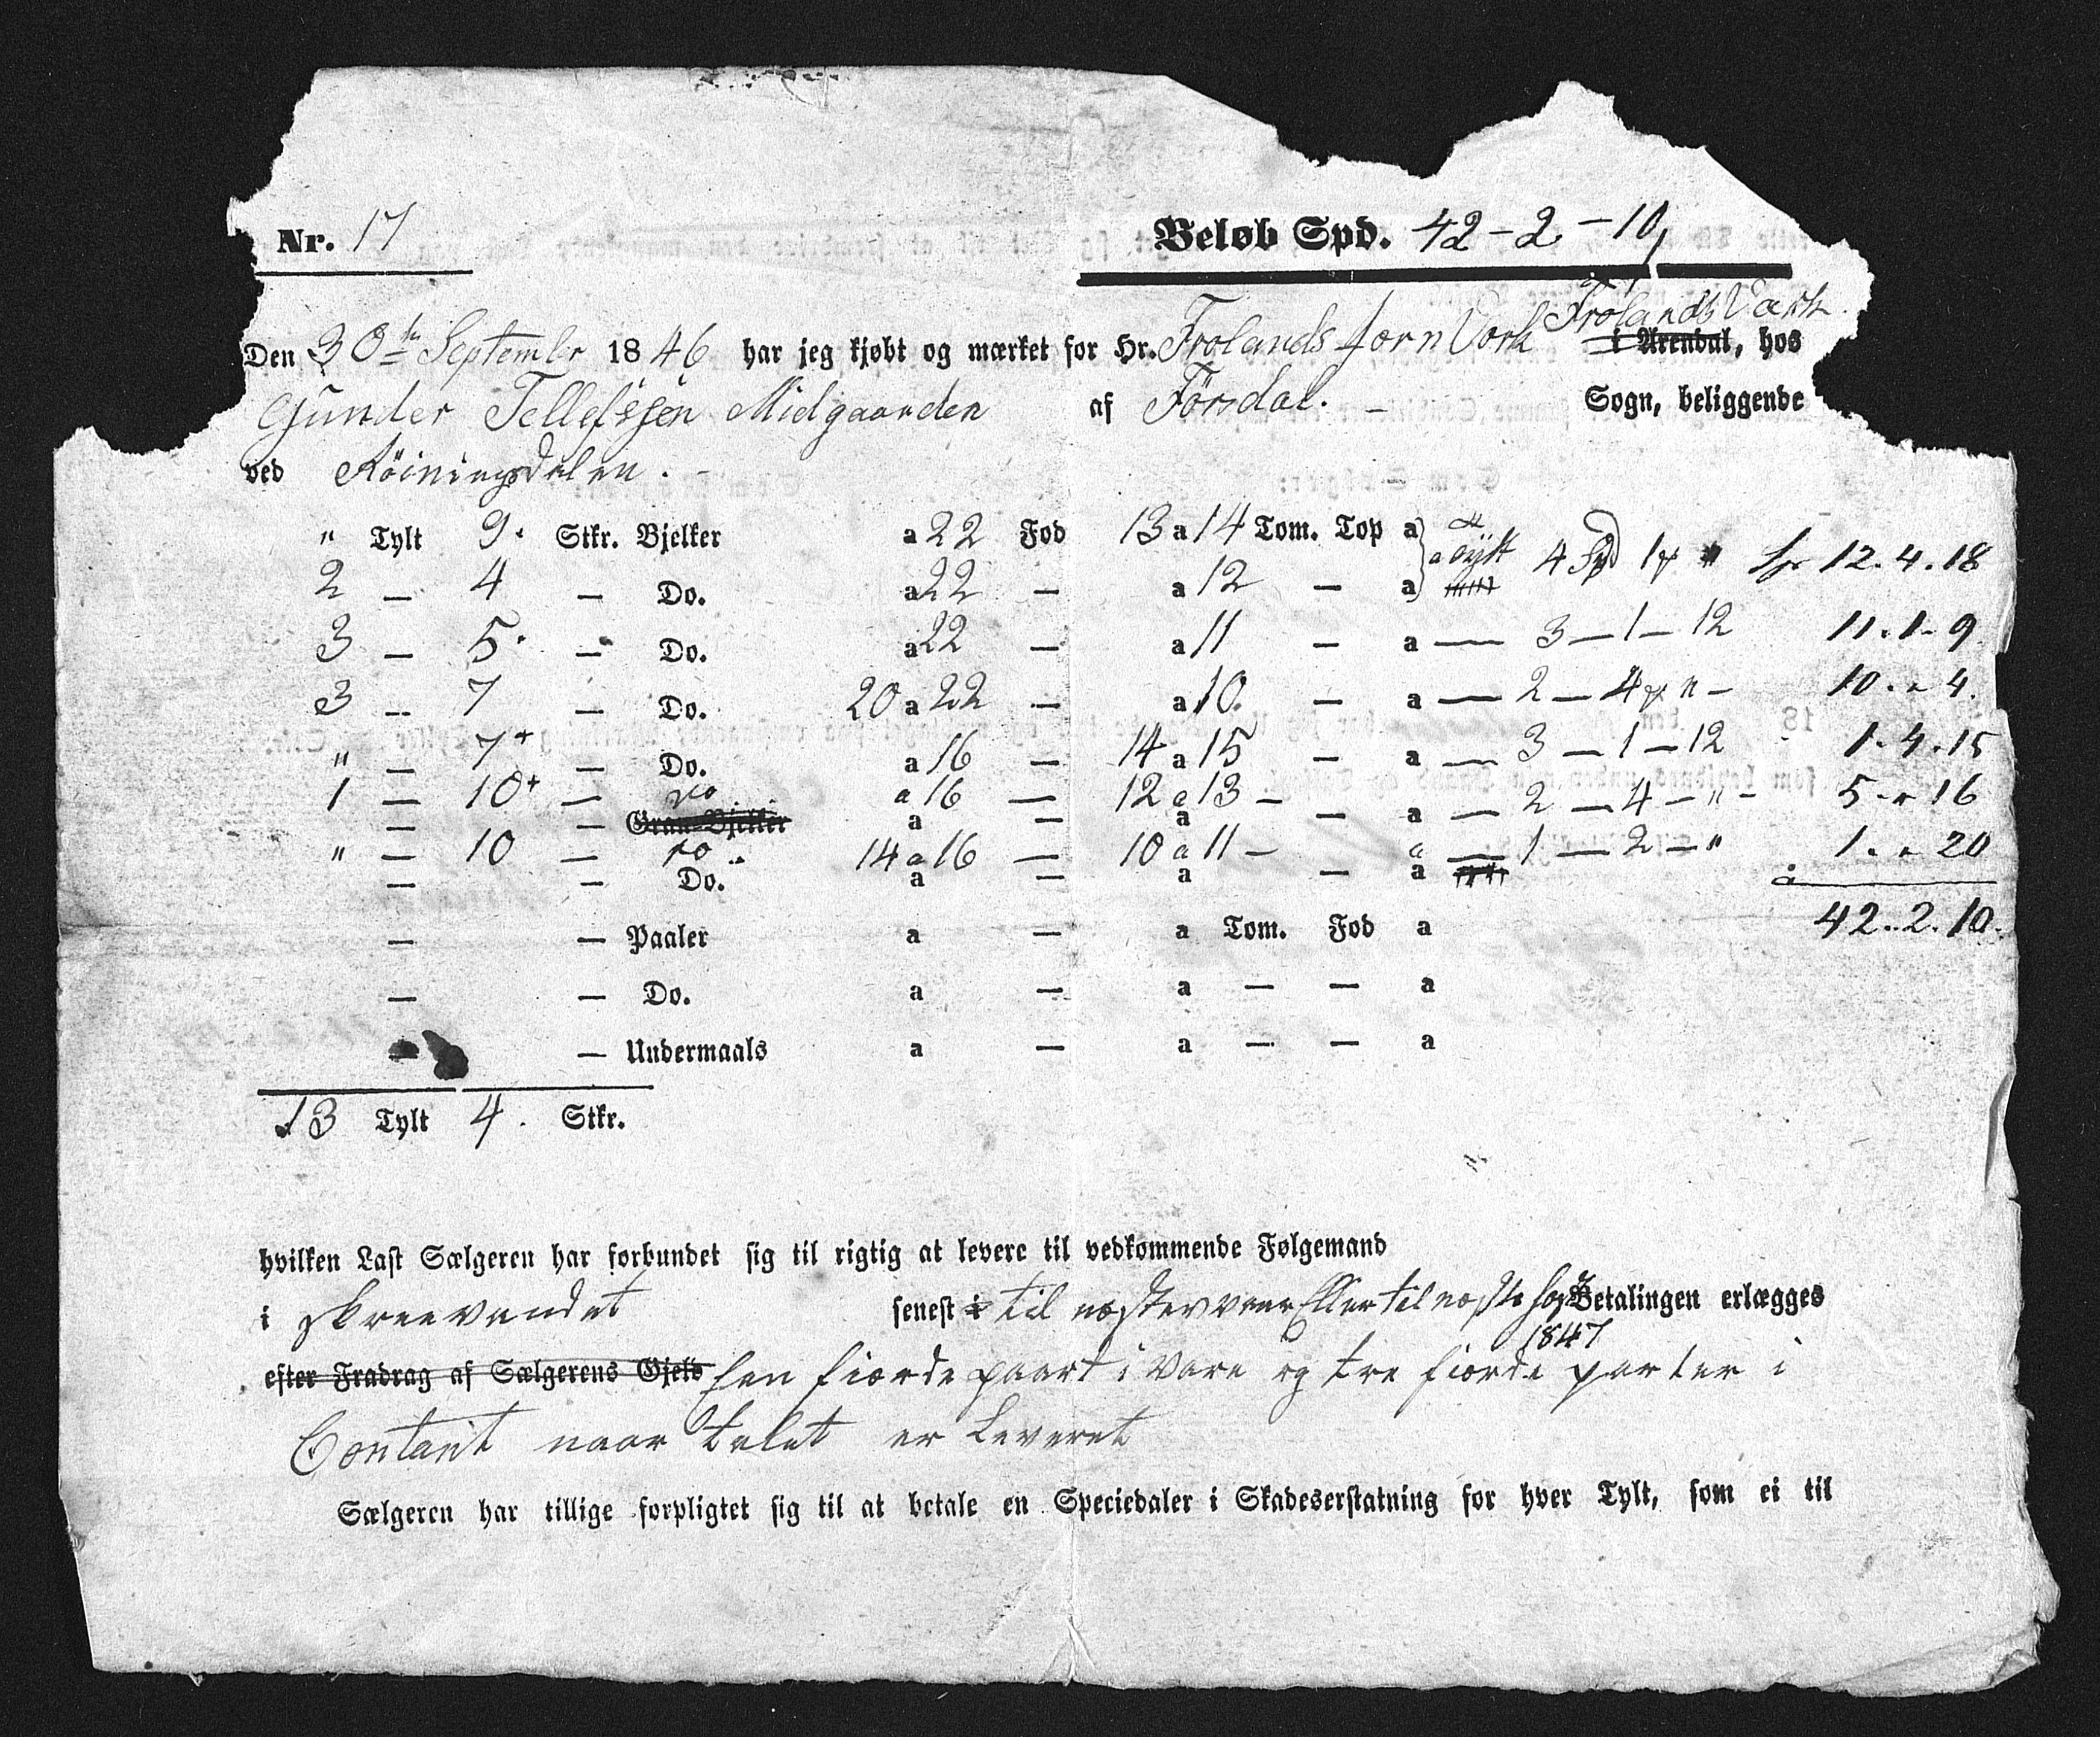 Nr. 17 Beløb Spd. 42-2-10,
Frolands Værk.
Den 30te Septembr 1846 har jeg kjøbt og mærket for Hr. Frolands Jern Verk i Arendal, hos
Gunder Tellefsen Midgaarden af Försdal. – Sogn, beliggende
ved Röiningsdalen. –
" Tylt 9. Stkr. Bjelker a 22 Fod 13 a 14 Tom. Top a a tÿlt 4 Spd 1 " 12.4.18
2 — 4 — Do. a 22 — a 12 — a
3 — 5. — Do. a 22 — a 11 — a — 3 — 1 — 12 11.1.9
3 — 7 — Do. 20 a 22 — a 10. — a — 2 — 4 " – 10. " 4.
" — 7+ — Do. a 16 — 14 a 15 — a — 3 — 1 — 12 1.4.15
1 — 10+ — do a 16 — 12 a 13 – a — 2 — 4 — " – 5 - " 16
— — Gran-Bjelker a — a — a
" — 10 — do .. 14 a 16 — 10 a 11 – a — 1 — 2 — " 1. " 20
— — Do. a — a — a
42..2.10.
— — Paaler a — a Tom. Fod a
— — Do. a — a — — a
— — Undermaals a — a — — a
13 Tylt 4. Stkr.
hvilken Last Sælgeren har forbundet sig til rigtig at levere til vedkommende Følgemand
i skreevandet senest i til næste vaar Eller til næste Betalingen erlægges
1847
efter Fradrag af Sælgerens Gjeld Een fiorde paart i Vare og tre fiorde parter i
Contant naar talet er Leveret
Sælgeren har tillige forpligtet sig til at betale en Speciedaler i Skadeserstatning for hver Tylt, som ei til